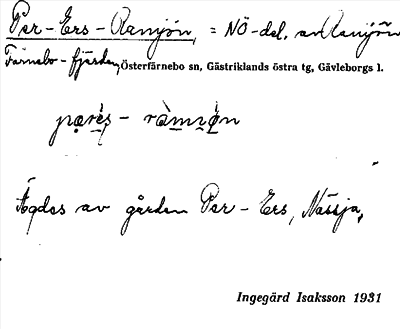 Per-Ers-Ramjön, = NÖ-del. av Ramjön
Färnebo-fjärden, Österfärnebo sn, Gästriklands östra tg, Gävleborgs l.
pæres - ramnøn
Ägdes av gården Per-Ers, Nässja,
Ingegärd Isaksson 1931